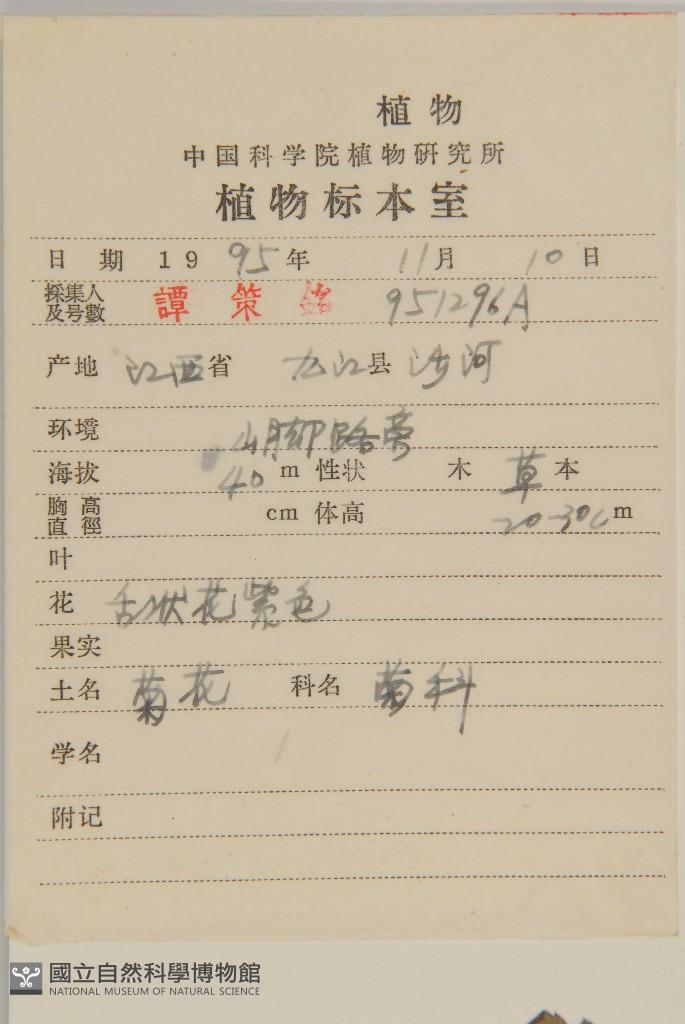 植物
中国科学院植物研究所
植物标本室
日期 1995年 11月 10日
採集人及号數 譚策銘 951296A
产地 江西省 九江县 沙河
环境 山脚路旁
海拔 40 m 性状 木 草本
胸高直徑 cm 体高 20-30cm
叶
花 舌状花紫色
果实
土名 菊花 科名 菊科
学名
附记
國立自然科學博物館
NATIONAL MUSEUM OF NATURAL SCIENCE